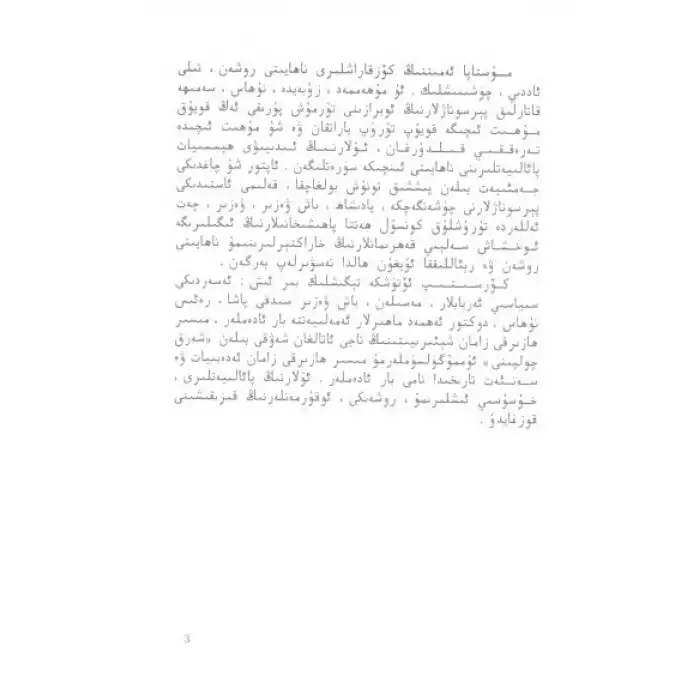 مۇستاپا ئەمىننىڭ كۆزقاراشلىرى ناھايىتى روشەن ، تىلى
ئاددىي ، چۈشىنىشلىك . ئۇ مۇھەممەد ، زۇبەيدە ، نۇھاس ، سەمىھە
قاتارلىق پېرسوناژلارنىڭ ئوبرازىنى تۇرمۇش پۇرىقى ئەڭ قويۇق
مۇھىت ئىچىگە قويۇپ تۇرۇپ ياراتقان ۋە شۇ مۇھىت ئىچىدە
تەرەققىي قىلدۇرغان ، ئۇلارنىڭ ئىدىيىۋى ھېسسىيات
پائالىيەتلىرىنى ناھايىتى ئىنچىكە سۈرەتلىگەن . ئاپتور شۇ چاغدىكى
جەمئىيەت بىلەن پىششىق تونۇش بولغاچقا ، قەلىمى ئاستىدىكى
پېرسوناژلارنى چۈشەنگەچكە ، پادىشاھ ، باش ۋەزىر ، ۋەزىر ، چەت
ئەللەردە تۇرۇشلۇق كونسۇل ھەتتا پاھىشىخانىلارنىڭ ئىگىلىرىگە
ئوخشاش سەلبىي قەھرىمانلارنىڭ خاراكتېرلىرىنىمۇ ناھايىتى
روشەن ۋە رېئاللىققا ئۇيغۇن ھالدا تەسۋىرلەپ بەرگەن .
كۆرسىتىپ ئۆتۈشكە تېگىشلىك بىر ئىش : ئەسەردىكى
سىياسىي ئەربابلار ، مەسىلەن ، باش ۋەزىر سىدقى پاشا ، رەئىس
نۇھاس ، دوكتور ئەھمەد ماھىرلار ئەمەلىيەتتە بار ئادەملەر . مىسىر
ھازىرقى زامان شېئىرىيىتىنىڭ تاجى ئاتالغان شەۋقى بىلەن «شەرق
چولپىنى» ئۇممۇگۇلسۇملەرمۇ مىسىر ھازىرقى زامان ئەدەبىيات ۋە
سەنئەت تارىخىدا نامى بار ئادەملەر . ئۇلارنىڭ پائالىيەتلىرى ،
خۇسۇسىي ئىشلىرىمۇ ، روشەنكى ، ئوقۇرمەنلەرنىڭ قىزىقىشىنى
قوزغايدۇ .
3